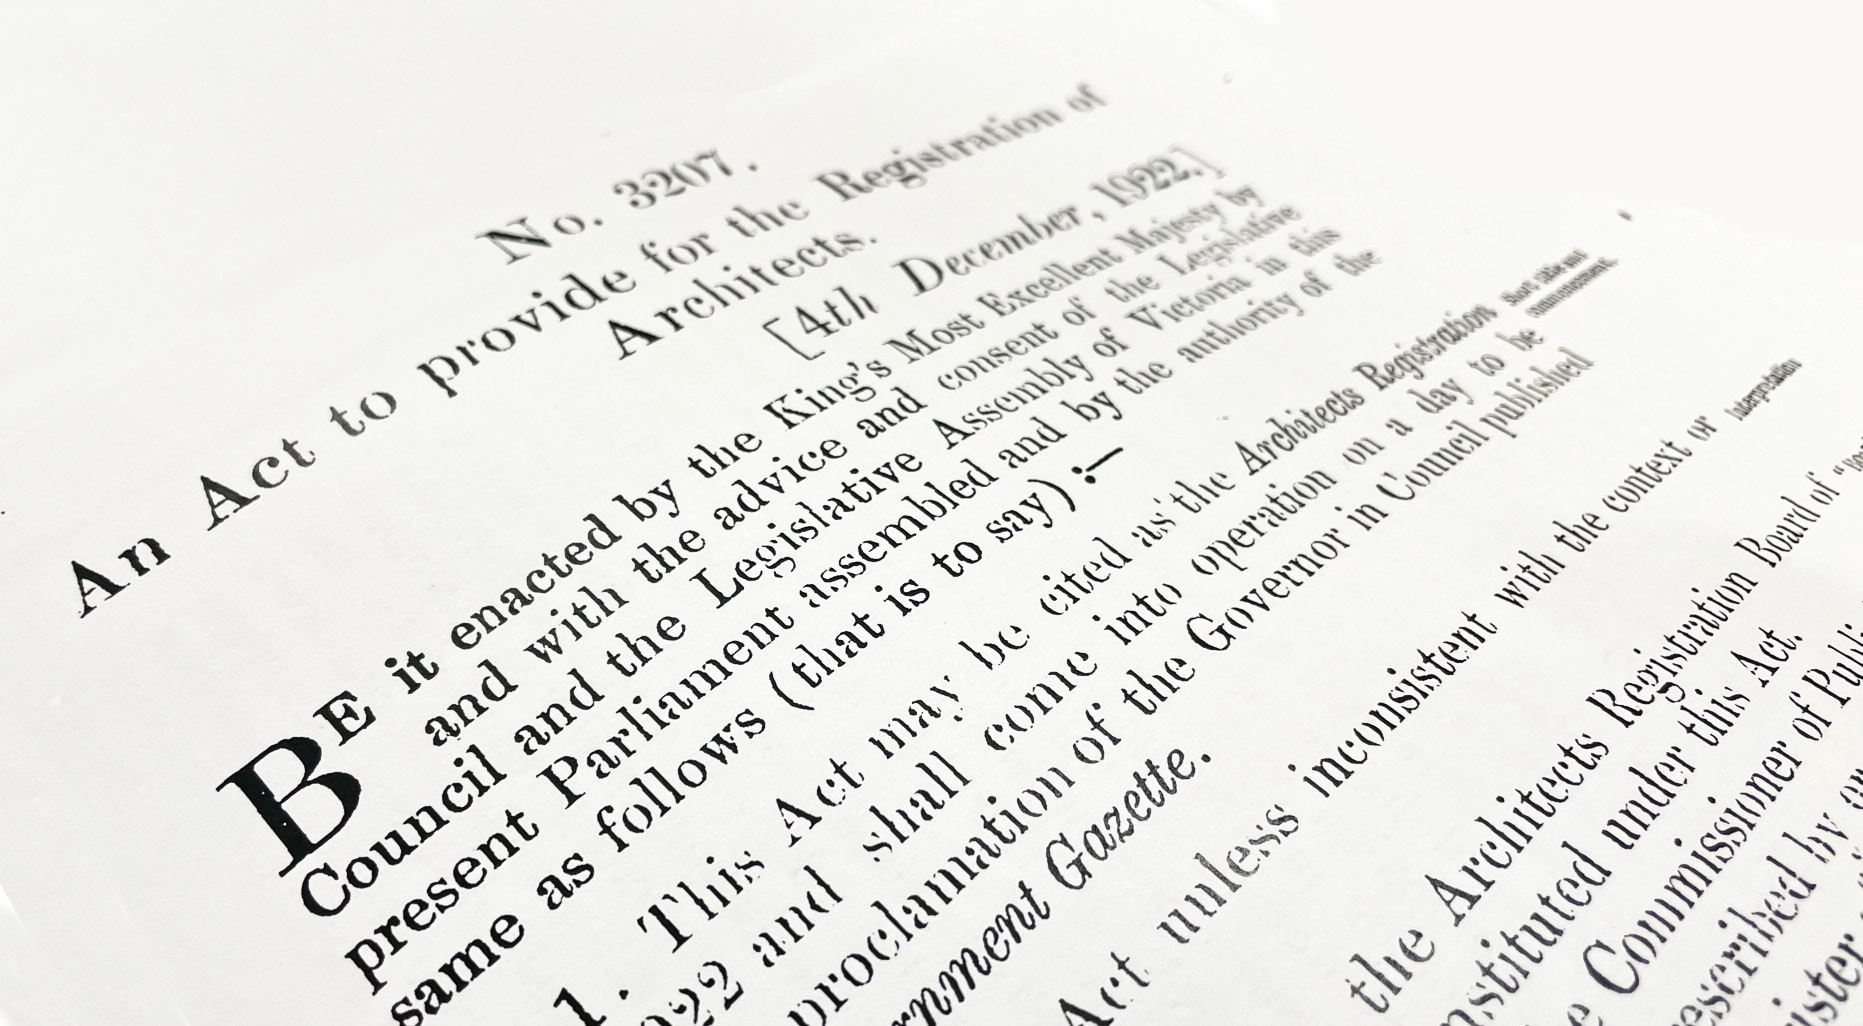 No. 3207.
An Act to provide for the Registration of
Architects.
[4th December, 1922.]
BE it enacted by the King's Most Excellent Majesty by
and with the advice and consent of the Legislative
Council and the Legislative Assembly of Victoria in this
present Parliament assembled and by the authority of the
same as follows (that is to say) :—
1. This Act may be cited as the Architects Registration
Short title and
commencement.
and shall come into operation on a day to be
proclamation of the Governor in Council published
Gazette.
Act unless inconsistent with the context or
Interpretation
the Architects Registration Board of
under this Act.
Commissioner of
by